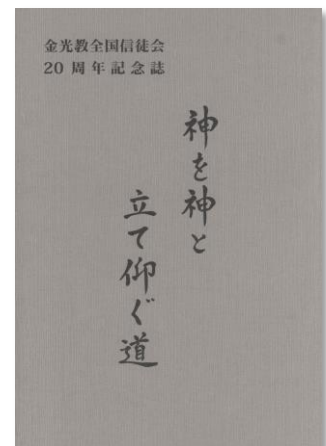 金光教全国信徒会
20周年記念誌
神を神と
立て仰ぐ道